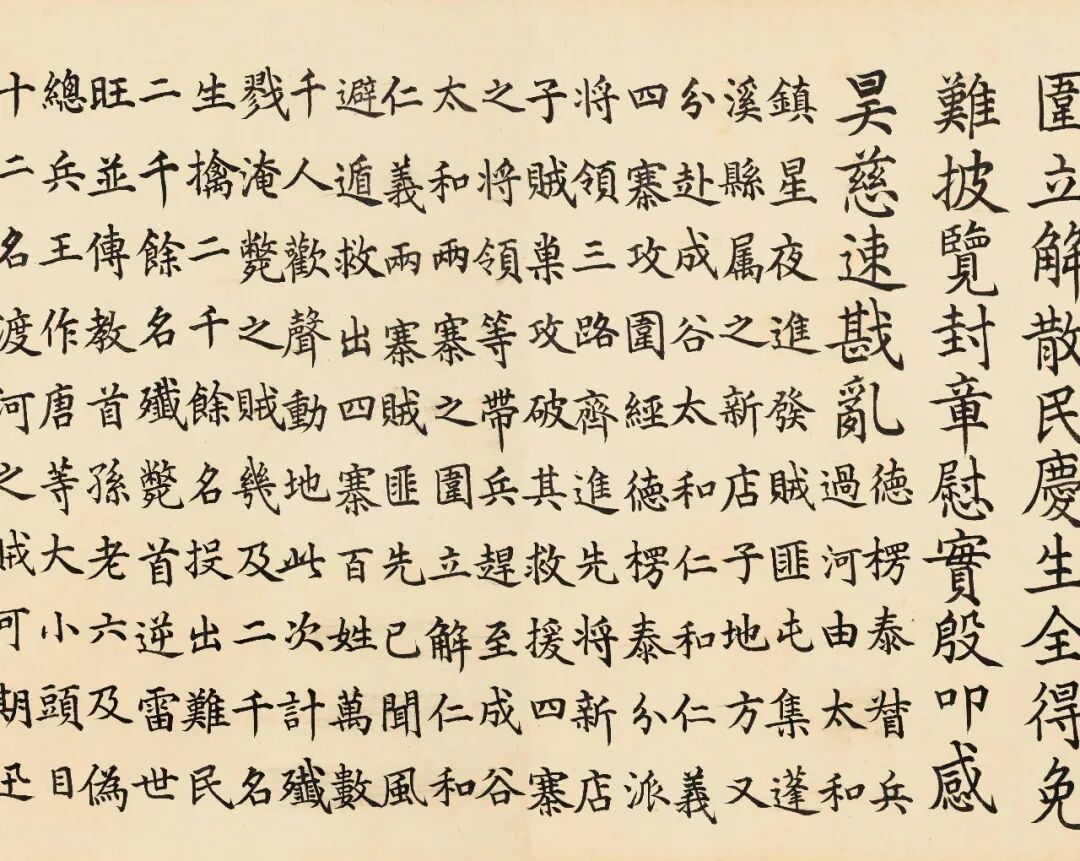 圍立解散民慶生全得免
難披覽封章慰實殷叩感
昊慈速戡亂
德楞泰督兵
過河由太和
鎮星夜進發賊匪屯集蓬
溪縣属之新店子地方又
分赴成谷太和仁和仁義
四寨攻圍經德楞泰分派
将領三路齊進先将新店
子賊巢攻破其救援四寨
之将領等帶兵趕至成谷
太和兩寨之圍立解仁和
仁義兩寨賊匪先已聞風
避遁救出四寨百姓萬數
千人歡聲動地此次計殲
戮淹斃之賊幾及二千名
生擒二千餘名投出難民
二千餘名殲斃首逆雷世
旺並傳教首孫老六及偽
總兵王作唐等大小頭目
十二名渡河之賊可期迅